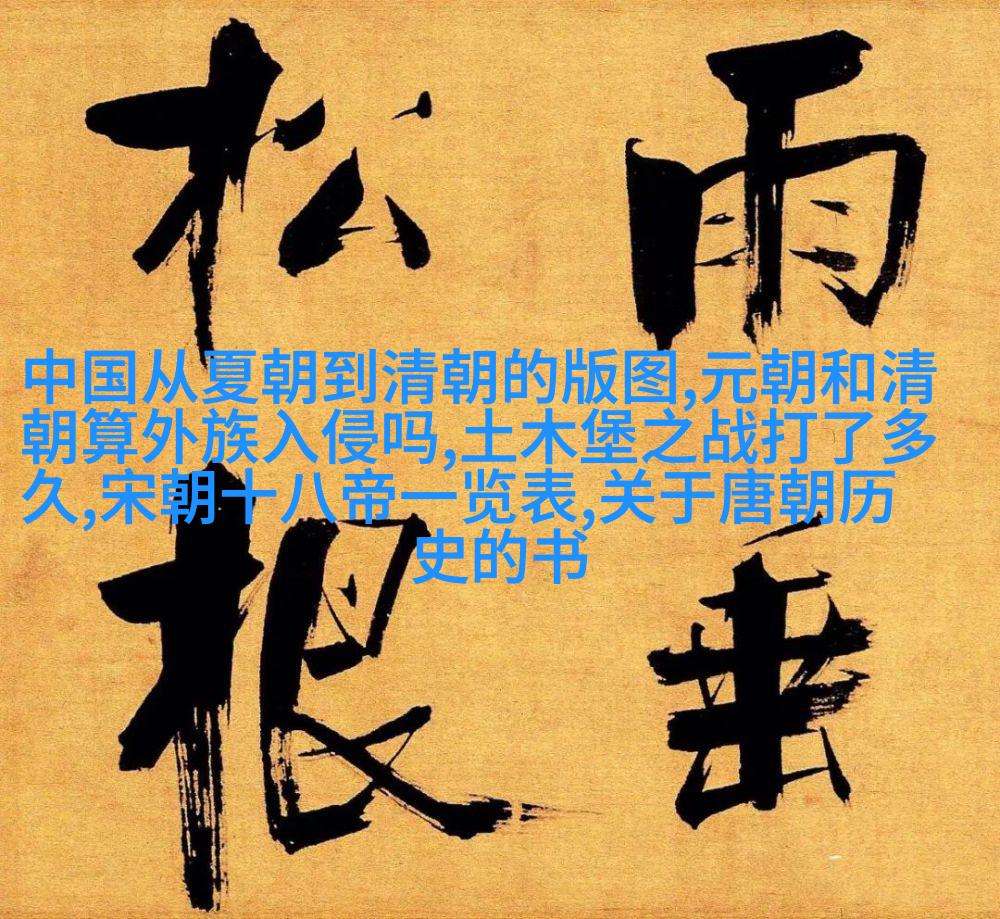 雨垂
松根
中国从夏朝到清朝的版图,元朝和清
朝算外族入侵吗,土木堡之战打了多
久,宋朝十八帝一览表,关于唐朝历
史的书